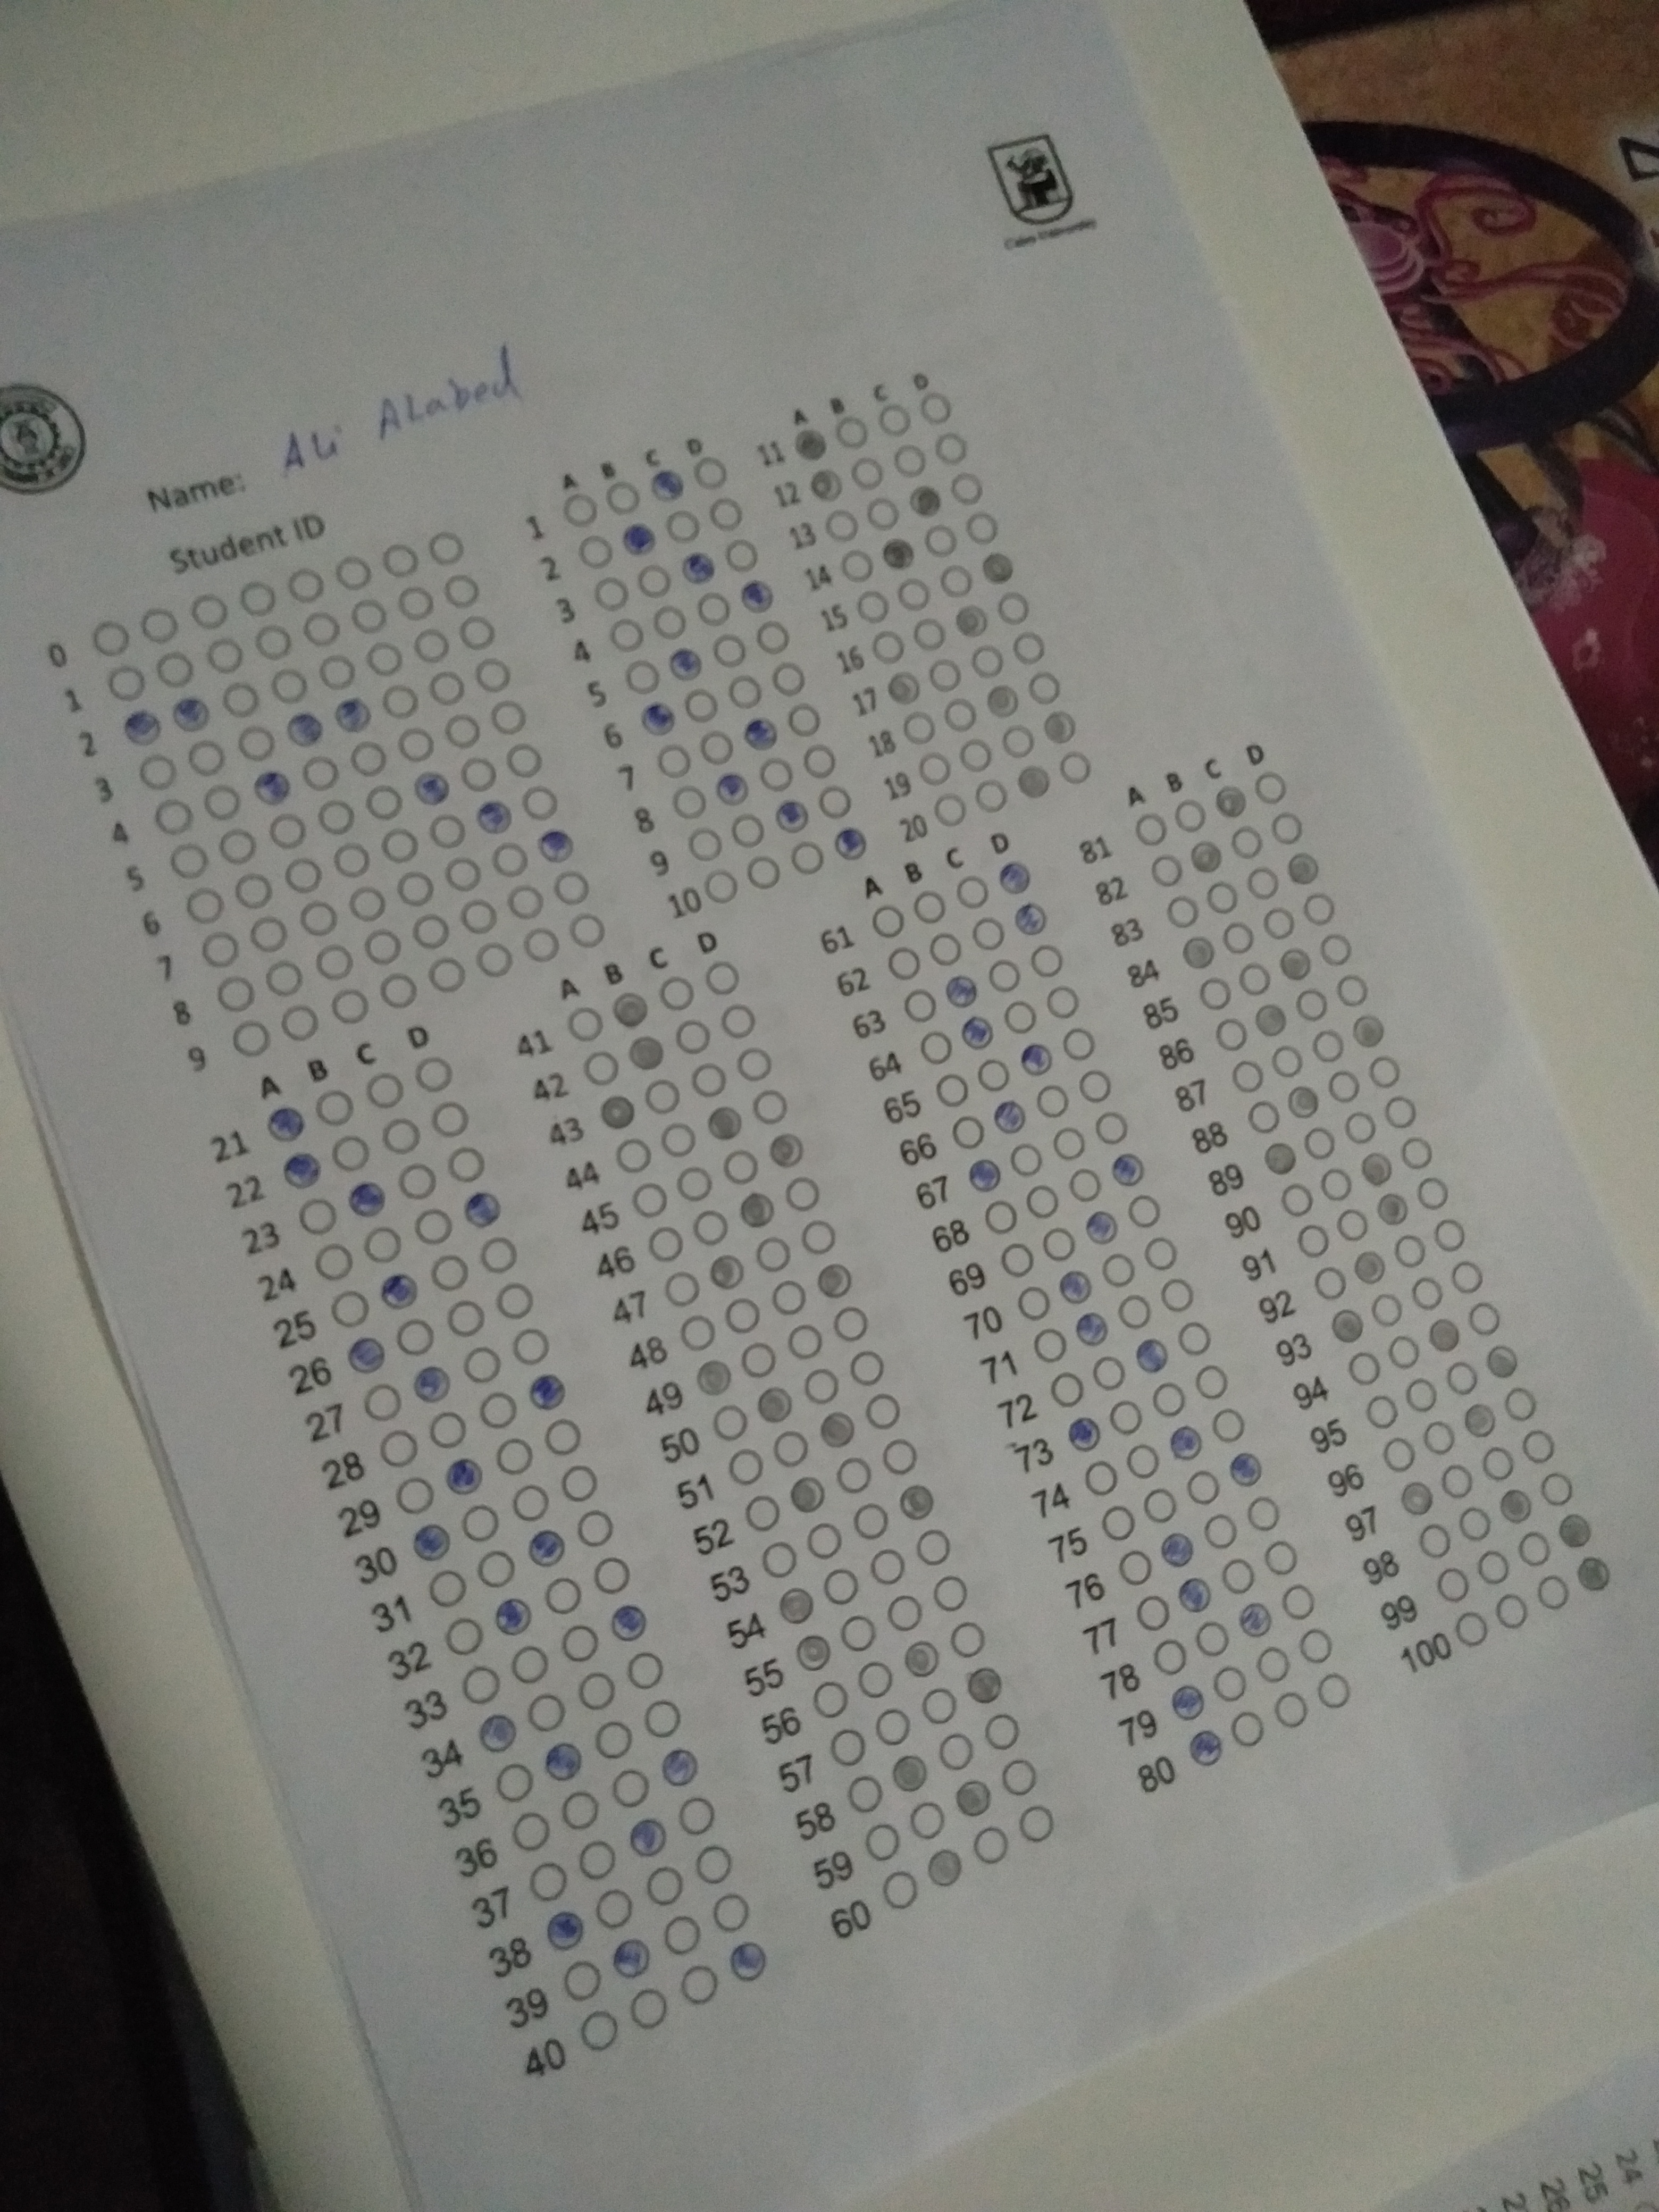 Cairo University
Name: Ali ALabed
Student ID
0
1
2
3
4
5
6
7
8
9
A B C D
1
2
3
4
5
6
7
8
9
10
A B C D
11
12
13
14
15
16
17
18
19
20
A B C D
21
22
23
24
25
26
27
28
29
30
31
32
33
34
35
36
37
38
39
40
A B C D
41
42
43
44
45
46
47
48
49
50
51
52
53
54
55
56
57
58
59
60
A B C D
61
62
63
64
65
66
67
68
69
70
71
72
73
74
75
76
77
78
79
80
A B C D
81
82
83
84
85
86
87
88
89
90
91
92
93
94
95
96
97
98
99
100
24
25
26